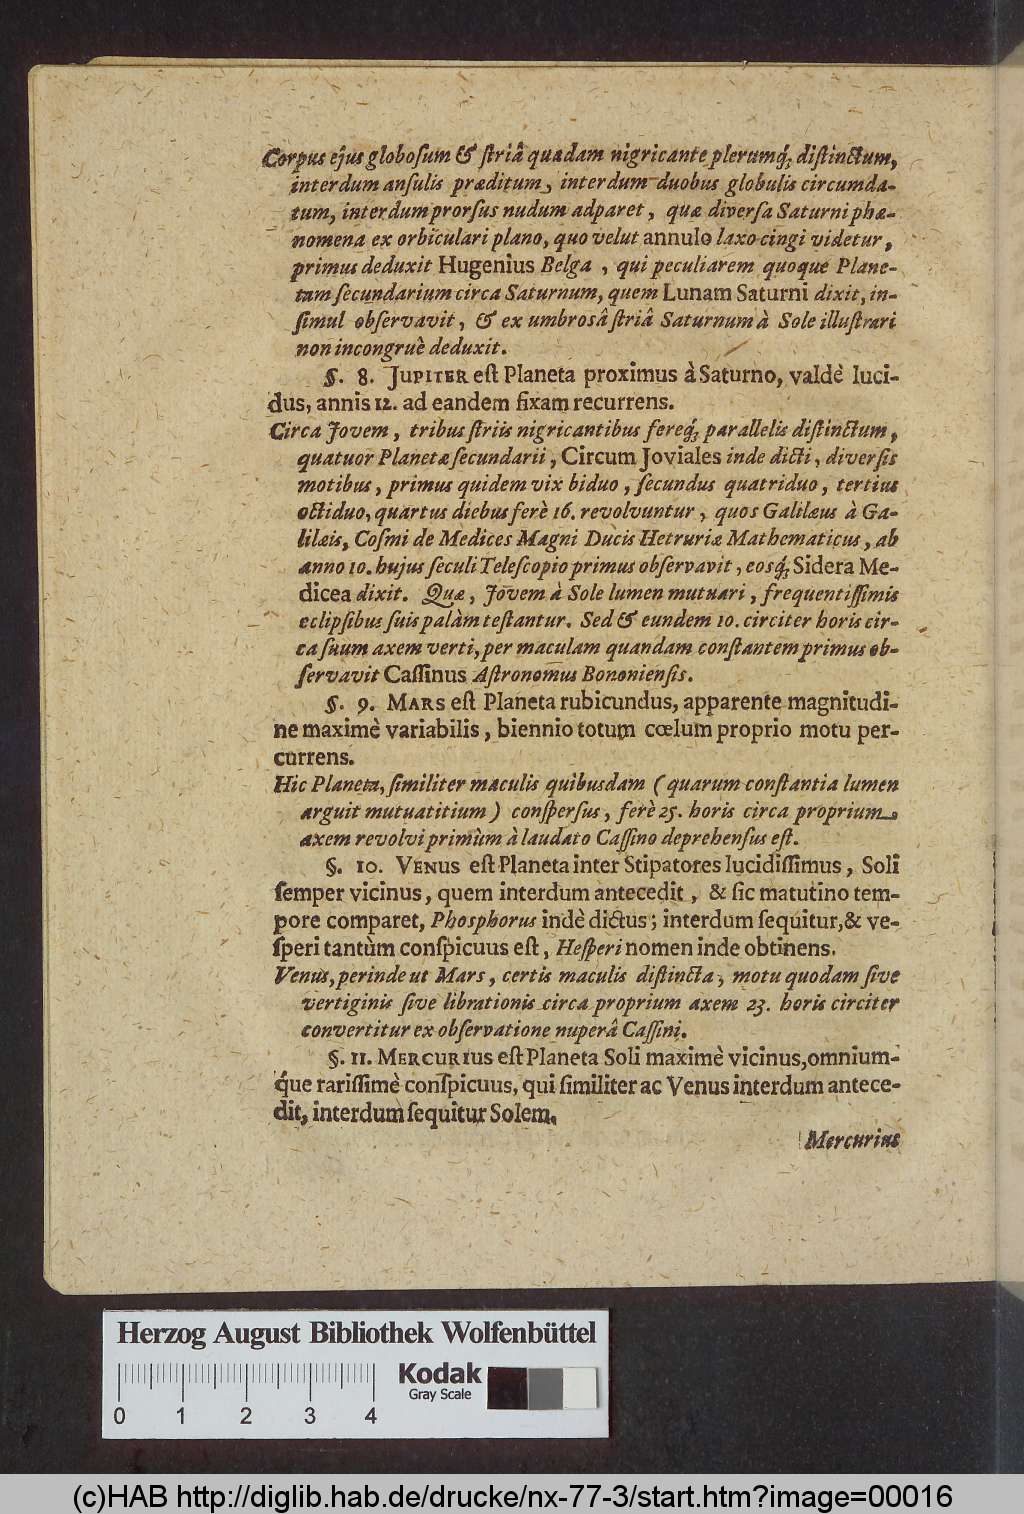 Corpus ejus globosum & striâ quadam nigricante plerumq́; distinctum,
interdum ansulis præditum, interdum duobus globulis circumda-
tum, interdum prorsus nudum adparet, quæ diversa Saturni phæ-
nomena ex orbiculari plano, quo velut annulo laxo cingi videtur,
primus deduxit Hugenius Belga, qui peculiarem quoque Plane-
tam secundarium circa Saturnum, quem Lunam Saturni dixit, in-
simul observavit, & ex umbrosâ striâ Saturnum à Sole illustrari
non incongruè deduxit.
§. 8. JUPITER est Planeta proximus à Saturno, valdè luci-
dus, annis 12. ad eandem fixam recurrens.
Circa Jovem, tribus striis nigricantibus fereq́; parallelis distinctum,
quatuor Planetæ secundarii, Circum Joviales inde dicti, diversis
motibus, primus quidem vix biduo, secundus quatriduo, tertius
octiduo, quartus diebus ferè 16. revolvuntur, quos Galilæus à Ga-
lilæis, Cosmi de Medices Magni Ducis Hetruriæ Mathematicus, ab
anno 10. hujus seculi Telescopio primus observavit, eosq́; Sidera Me-
dicea dixit. Quæ, Jovem à Sole lumen mutuari, frequentissimis
eclipsibus suis palàm testantur. Sed & eundem 10. circiter horis cir-
ca suum axem verti, per maculam quandam constantem primus ob-
servavit Cassinus Astronomus Bononiensis.
§. 9. MARS est Planeta rubicundus, apparente magnitudi-
ne maximè variabilis, biennio totum cœlum proprio motu per-
currens.
Hic Planeta, similiter maculis quibusdam (quarum constantia lumen
arguit mutuatitium) conspersus, ferè 25. horis circa proprium
axem revolvi primùm à laudato Cassino deprehensus est.
§. 10. VENUS est Planeta inter Stipatores lucidissimus, Soli
semper vicinus, quem interdum antecedit, & sic matutino tem-
pore comparet, Phosphorus indè dictus; interdum sequitur, & ve-
speri tantùm conspicuus est, Hesperi nomen inde obtinens.
Venus, perinde ut Mars, certis maculis distincta, motu quodam sive
vertiginis sive librationis circa proprium axem 23. horis circiter
convertitur ex observatione nuperâ Cassini.
§. 11. MERCURIUS est Planeta Soli maximè vicinus, omnium-
q́ue rarissimè conspicuus, qui similiter ac Venus interdum antece-
dit, interdum sequitur Solem.
Mercurius
Herzog August Bibliothek Wolfenbüttel
Kodak
Gray Scale
0 1 2 3 4
(c)HAB http://diglib.hab.de/drucke/nx-77-3/start.htm?image=00016